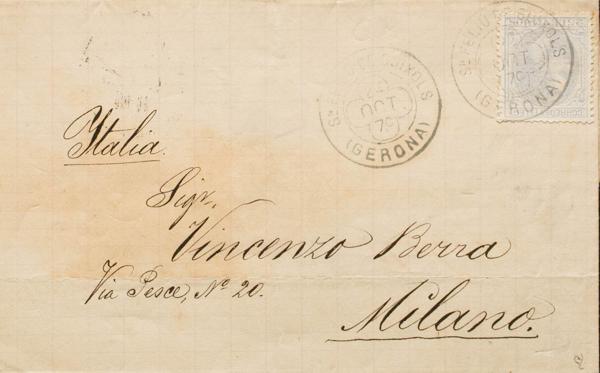 Sⁿ FELIU DE GUIXOLS
OCT
79
(GERONA)
Sⁿ FELIU DE GUIXOLS
OCT
79
(GERONA)
Italia.
Sigr.
Vincenzo Berra
Via Pesce, Nº 20.
Milano.